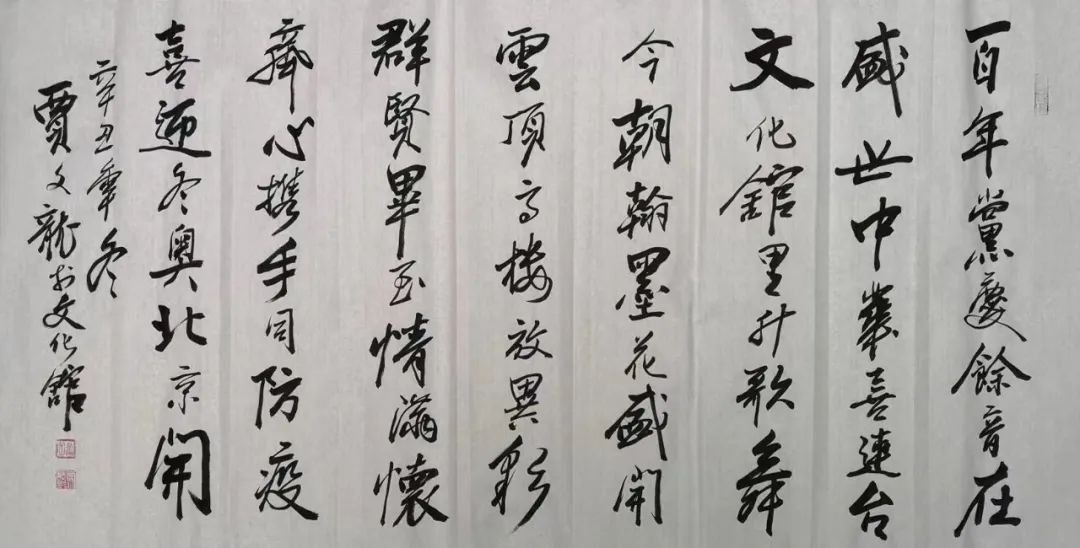 百年黨慶餘音在
盛世中華喜連台
文化舘里升歌舞
今朝翰墨花盛開
雲頂高樓放異彩
群賢畢至情滿懷
齊心携手同防疫
喜迎冬奧北京開
辛丑年冬
賈文龍於文化舘